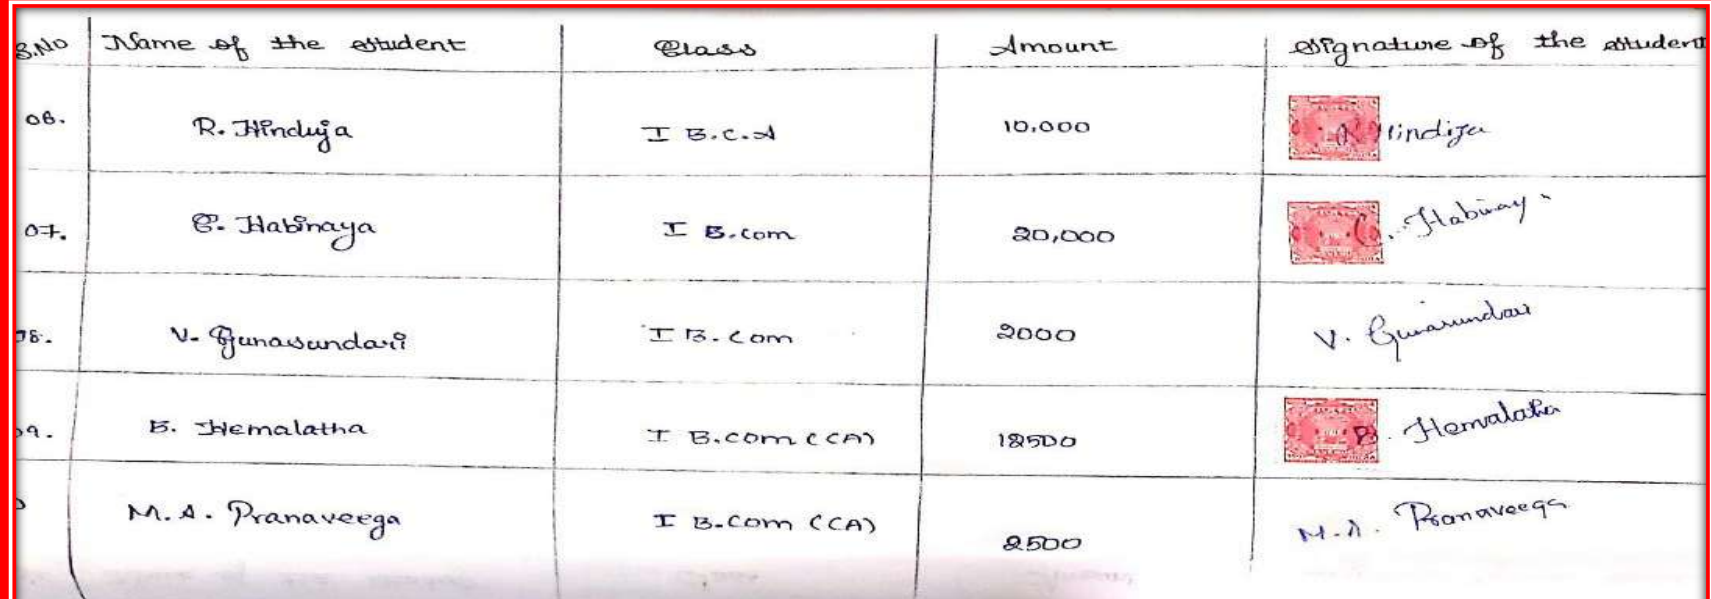 S.No Name of the student Class Amount Signature of the student
06. R. Hinduja I B.C.A 10,000 R Hindija
07. C. Habinaya I B.com 20,000 C. Habinay
08. V. Gunasundari I B.com 2000 V. Gunasundari
09. B. Hemalatha I B.com (CA) 12500 B. Hemalatha
M.A. Pranaveega I B.com (CA) 2500 M.A. Pranaveega